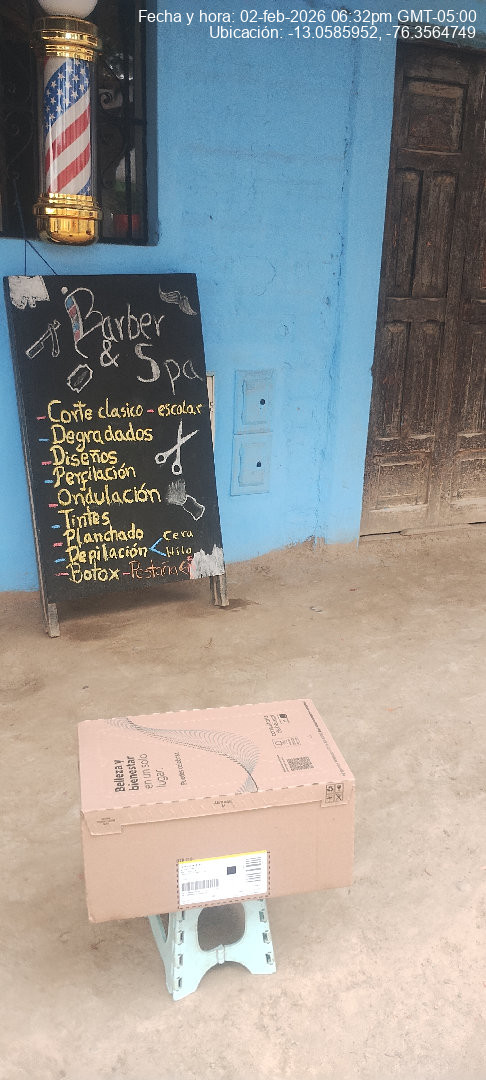 Fecha y hora: 02-feb-2026 06:32pm GMT-05:00
Ubicación: -13.0585952, -76.3564749
Barber
& Spa
- Corte clasico - escolar
- Degradados
- Diseños
- Perfilación
- Ondulación
- Tintes
- Planchado
- Depilación < Cera
Hilo
- Botox - Pestañas
Belleza y
bienestar
en un solo
lugar.